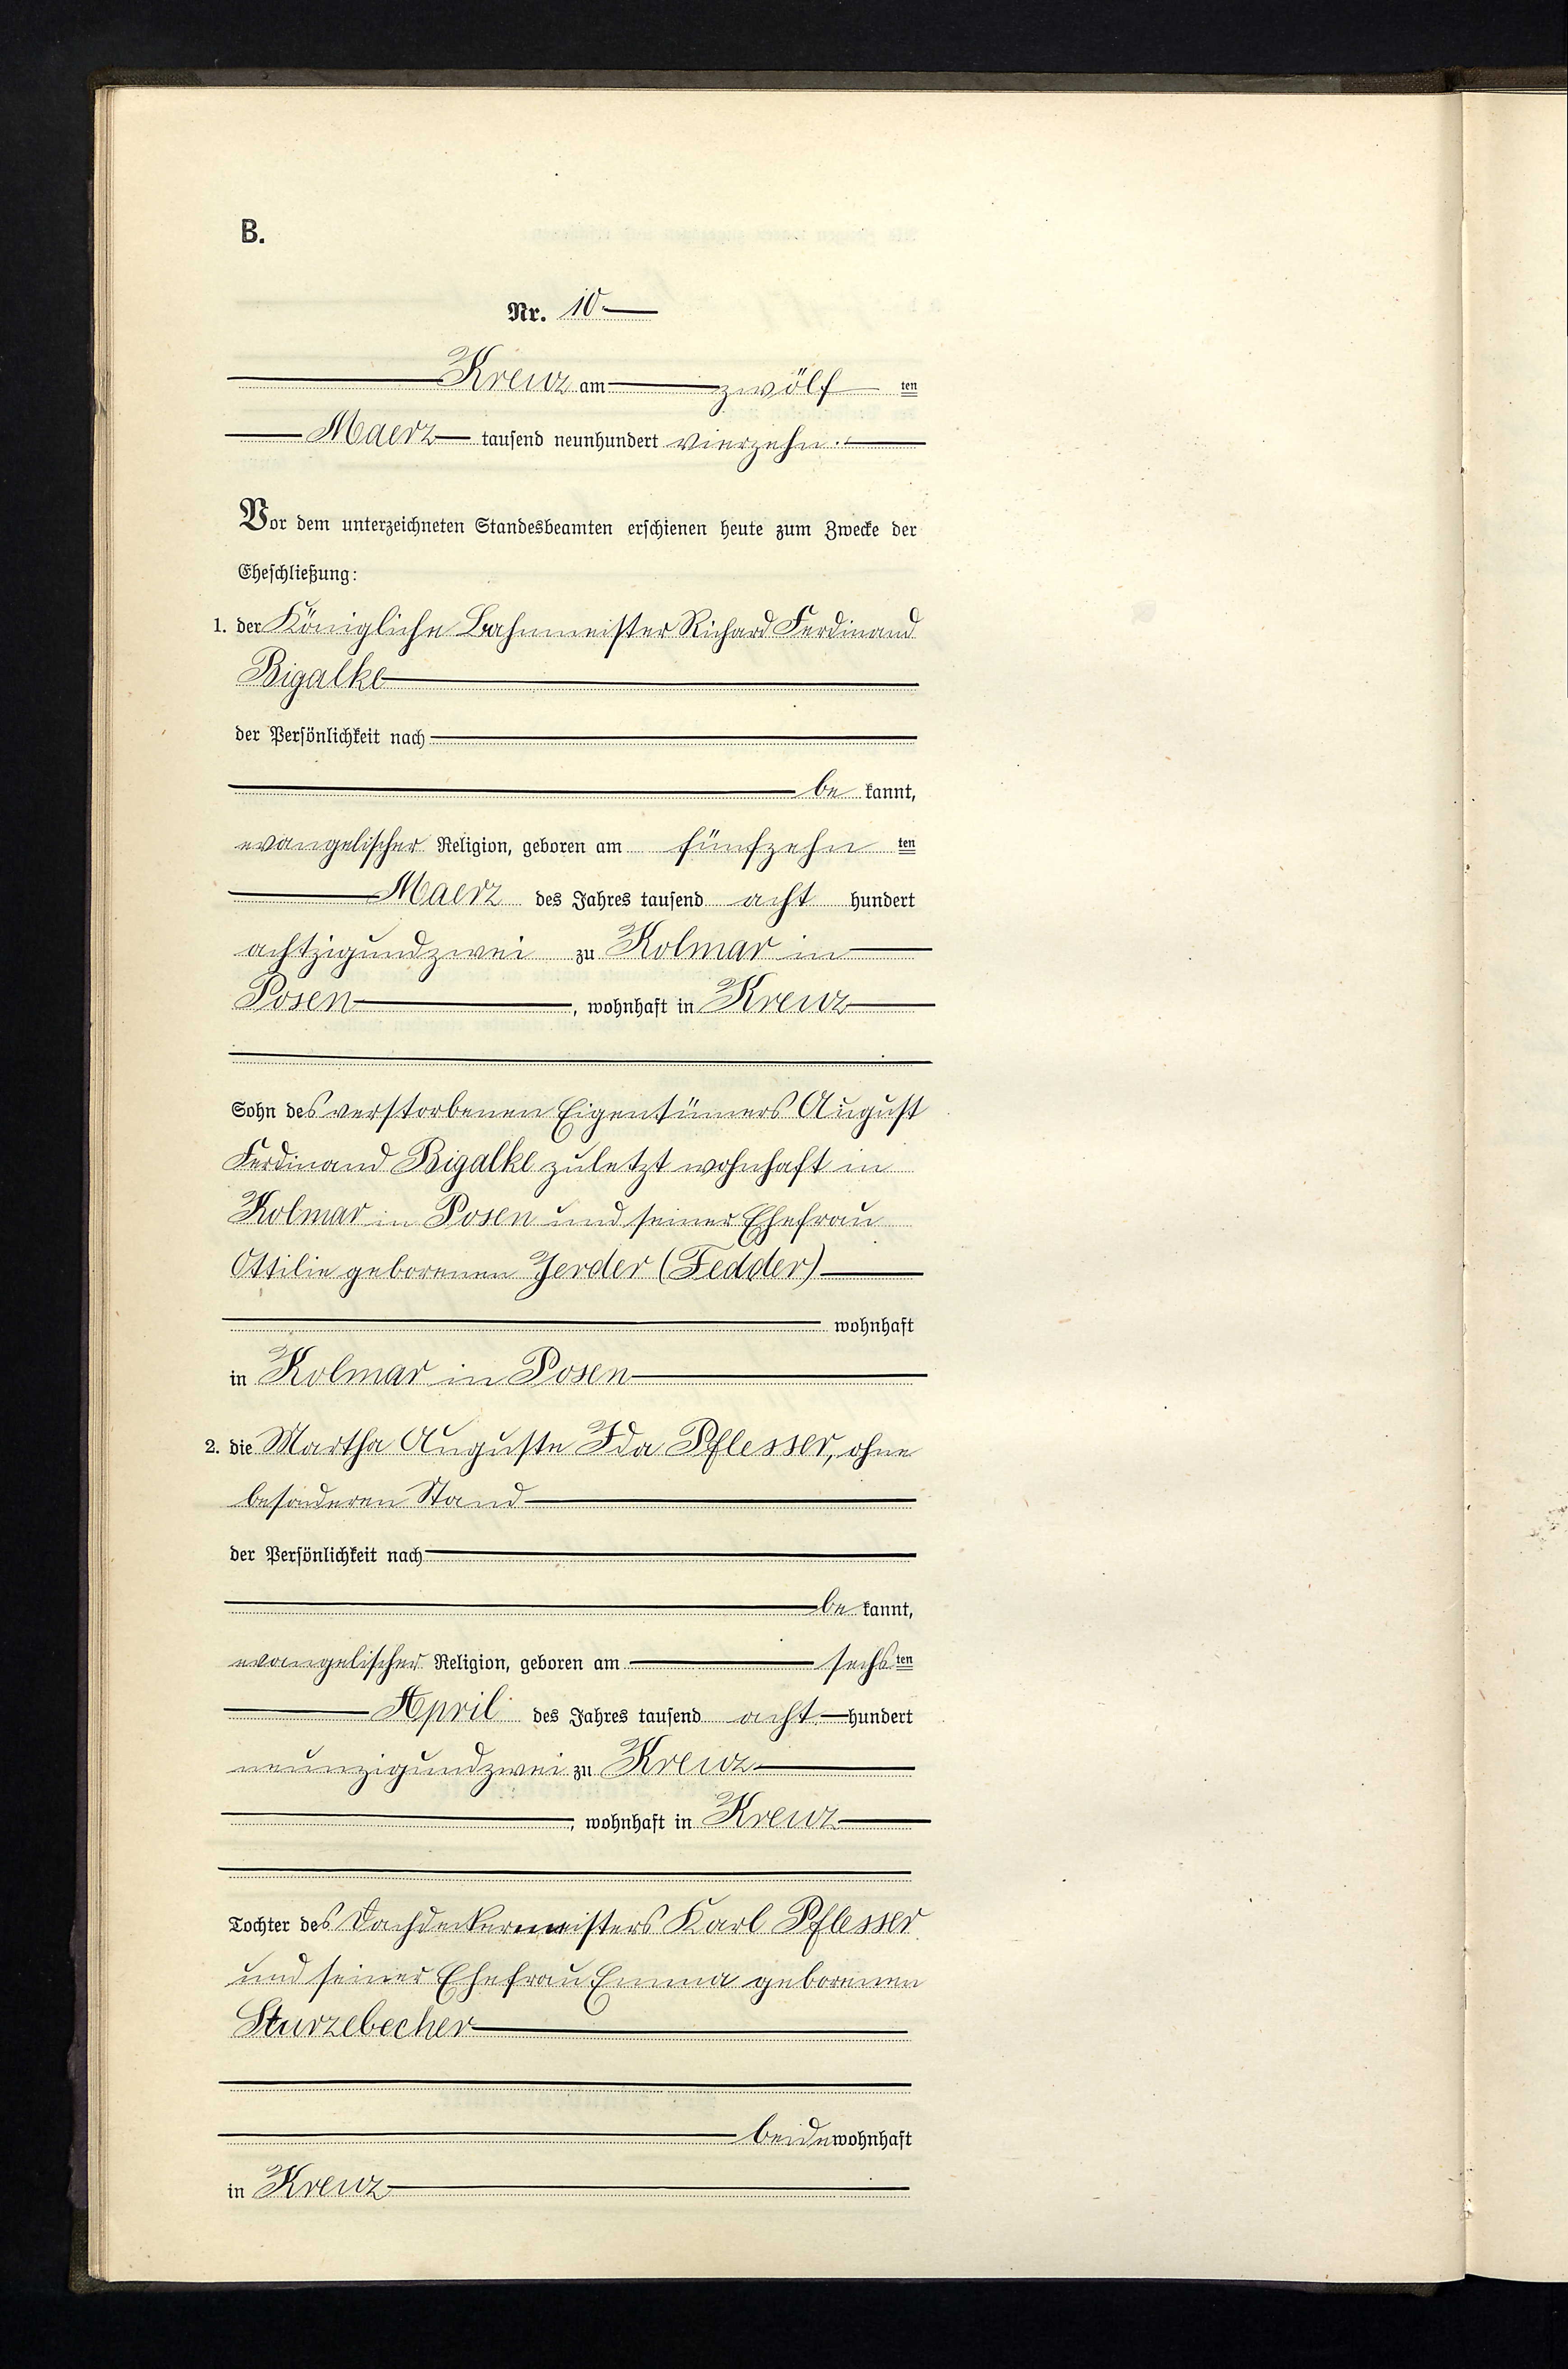 B.
Nr. 10
Kreuz am zwölf ten
Maerz tausend neunhundert vierzehn.
Vor dem unterzeichneten Standesbeamten erschienen heute zum Zwecke der
Eheschließung:
1. der Königliche Bahnmeister Richard Ferdinand
Bigalke
der Persönlichkeit nach
be kannt,
evangelischer Religion, geboren am fünfzehn ten
Maerz des Jahres tausend acht hundert
achtzigundzwei zu Kolmar in
Posen, wohnhaft in Kreuz
Sohn des verstorbenen Eigentümers August
Ferdinand Bigalke zuletzt wohnhaft in
Kolmar in Posen und seiner Ehefrau
Ottilie geborenen Jerder (Fedder)
wohnhaft
in Kolmar in Posen
2. die Martha Auguste Ida Pflesser, ohne
besonderen Stand
der Persönlichkeit nach
be kannt,
evangelischer Religion, geboren am sechs ten
April des Jahres tausend acht hundert
neunzigundzwei zu Kreuz
, wohnhaft in Kreuz
Tochter des Dachdeckermeisters Karl Pflesser
und seiner Ehefrau Emma geborenen
Sturzebecher
beide wohnhaft
in Kreuz